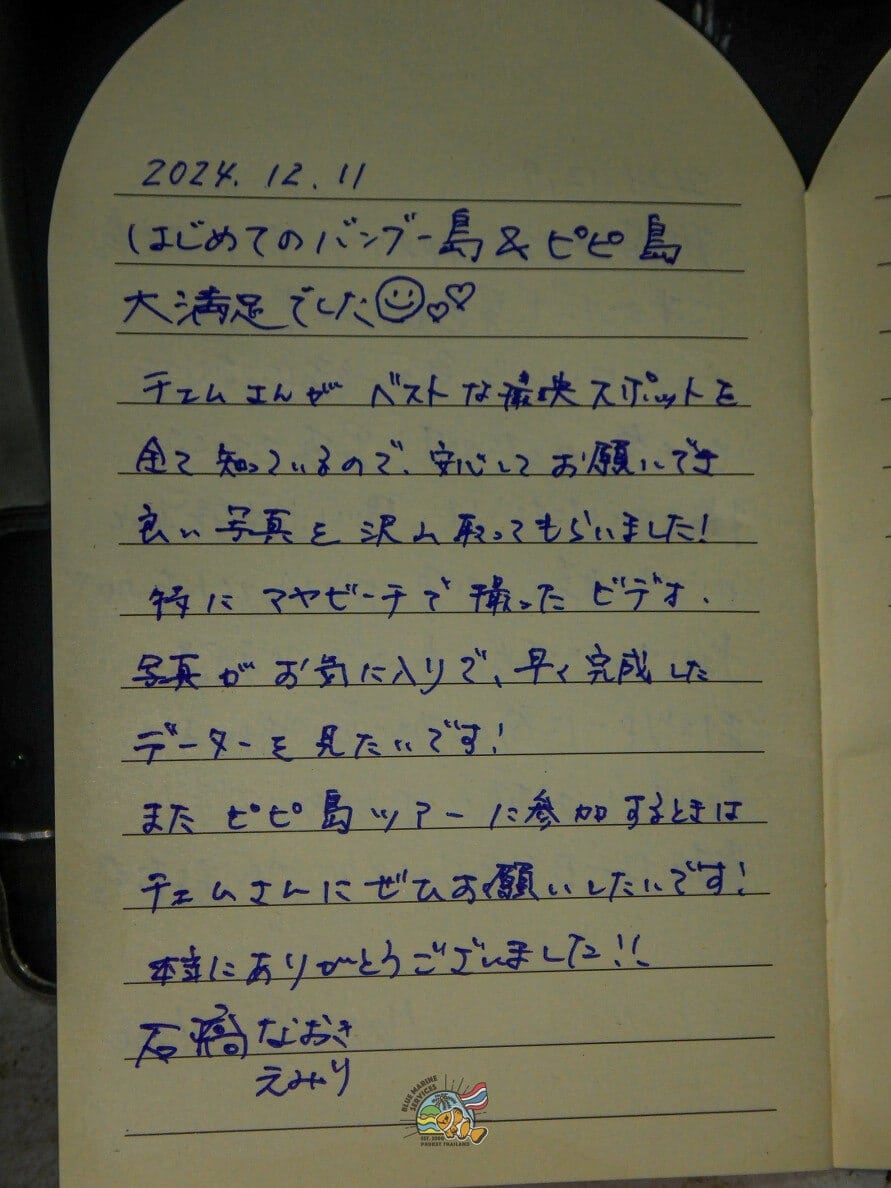 2024.12.11
はじめてのバンブー島&ピピ島
大満足でした
チェムさんが ベストな撮映スポットを
全て知っているので、安心してお願いでき
良い写真を沢山取ってもらいました!
特に マヤビーチで撮ったビデオ、
写真がお気に入りで、早く完成した
データーを見たいです!
また ピピ島ツアーに参加するときは
チェムさんにぜひお願いしたいです!
本当にありがとうございました!!
石橋なおき
えみり
BLUE MARINE SERVICES
EST. 2000
PHUKET THAILAND